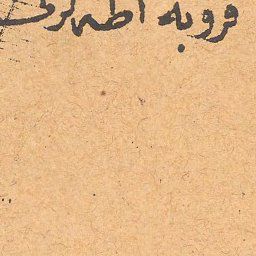 قروبه اطه لرى